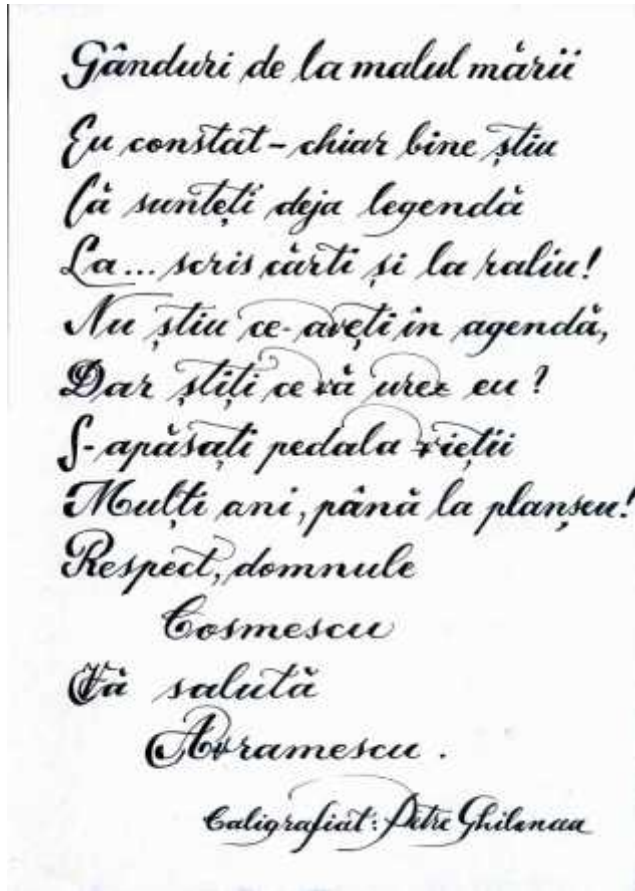 Gânduri de la malul mării
Eu constat - chiar bine știu
Că sunteți deja legendă
La... scris cărti și la raliu!
Nu știu ce-aveți in agendă,
Dar știți ce vă urez eu?
S-apăsați pedala vieții
Mulți ani, până la planșeu!
Respect, domnule
Cosmescu
Vă salută
Avramescu.
Caligrafiat: Petre